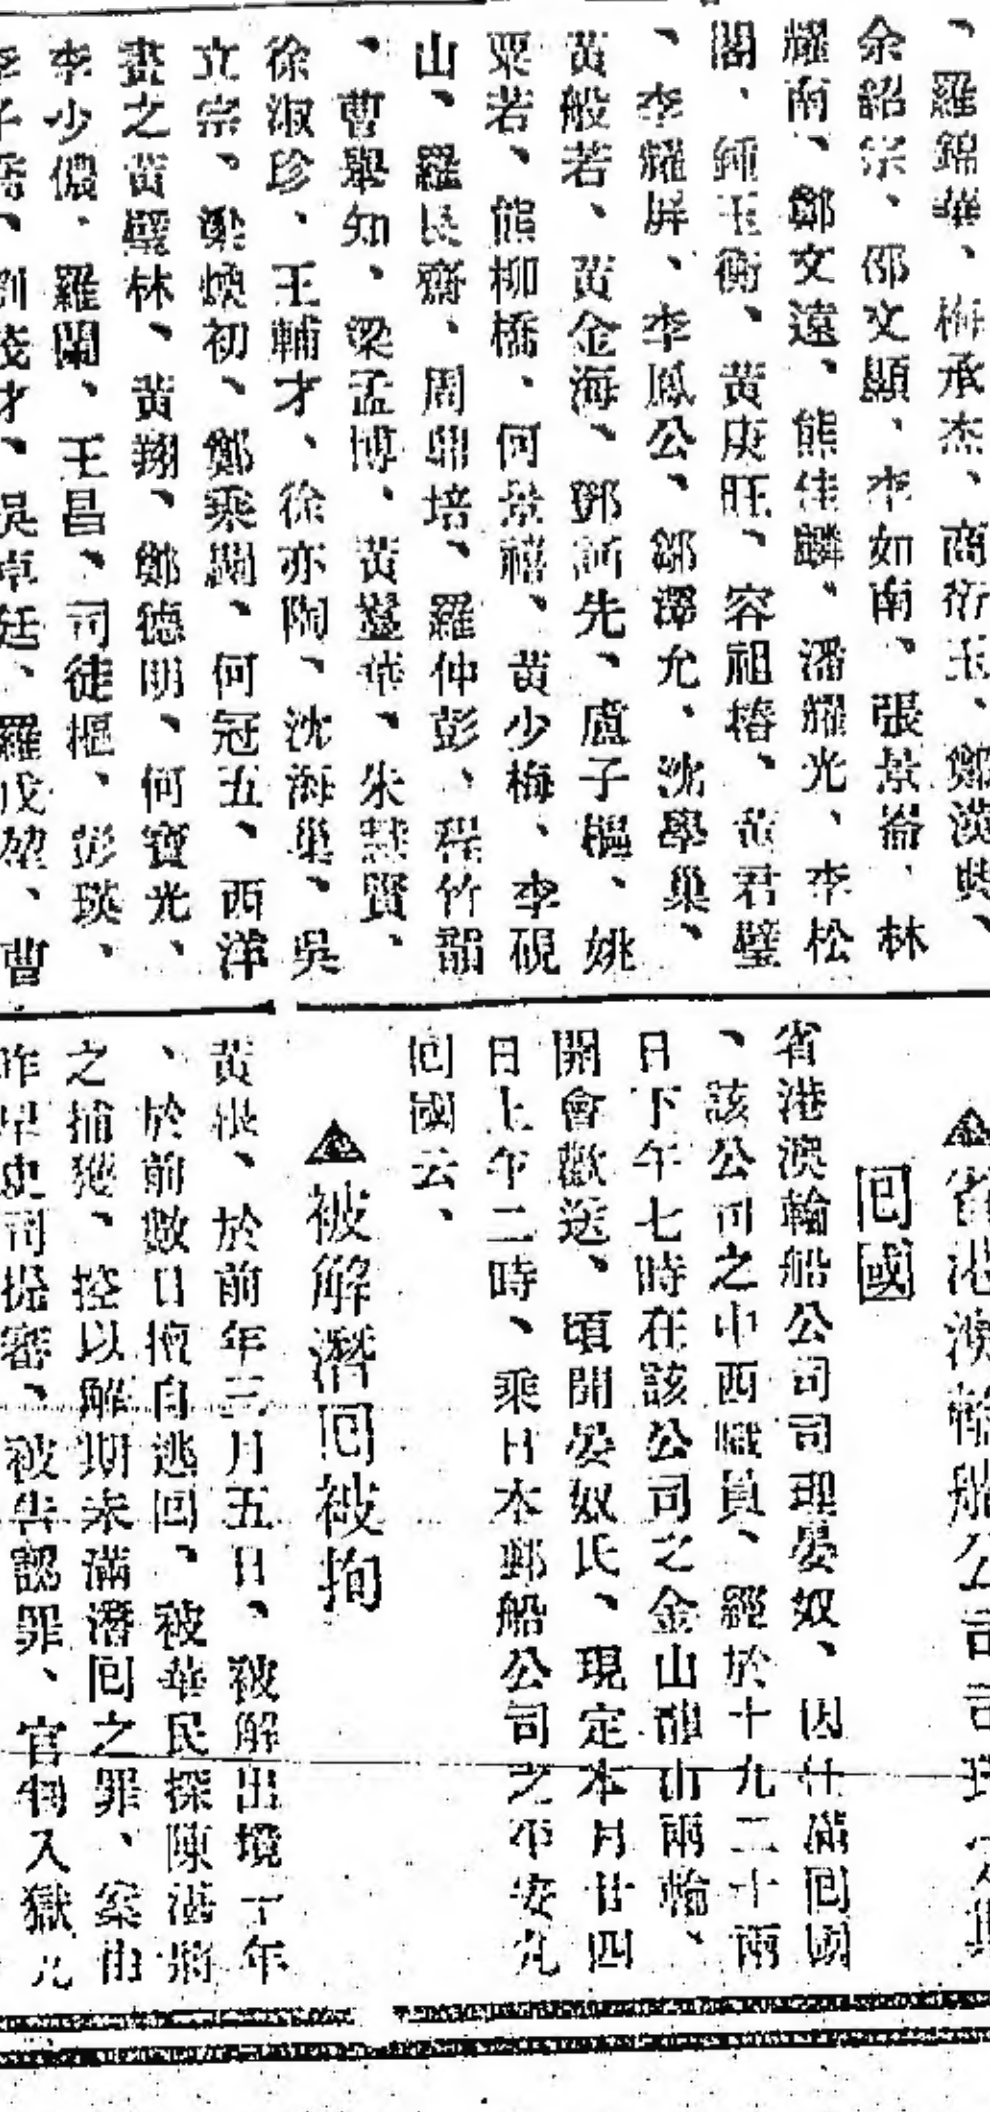 、羅錦華、梅承杰、商衍玉、鄭漢典、
余紹宗、邵文顯、李如南、張景崙、林
耀南、鄭文遠、熊佳麟、潘耀光、李松
閣、鍾玉衡、黃庚旺、容祖椿、黃君璧
、李耀屏、李鳳公、鄒澤允、沈學巢、
黃般若、黃金海、鄧訴先、盧子樞、姚
粟若、熊柳橋、何景禧、黃少梅、李硯
山、羅艮齋、周鼎培、羅仲彭、程竹韻
、曹舉知、梁孟博、黃鑾華、朱慧賢、
徐淑珍、王輔才、徐亦陶、沈海巢、吳
立宗、梁煥初、鄭乘閶、何冠五、西洋
畫之黃璧林、黃翔、鄭德明、何寶光、
李少儂、羅蘭、王昌、司徒樞、彭瑛、
李子喬、劉茂才、吳卓廷、羅戊堃、曹
▲省港澳輪船公司司理
囘國
省港澳輪船公司司理晏奴、因任滿囘國
、該公司之中西職員、經於十九二十兩
日下午七時在該公司之金山龍山兩輪、
開會歡送、頃聞晏奴氏、現定本月廿四
日上午二時、乘日本郵船公司之平安丸
囘國云、
▲被解潛囘被拘
黃根、於前年三月五日、被解出境十年
、於前數日擅自逃回、被華民探陳湛將
之捕獲、控以解期未滿潛囘之罪、案由
昨早史司提審、被告認罪、官判入獄九